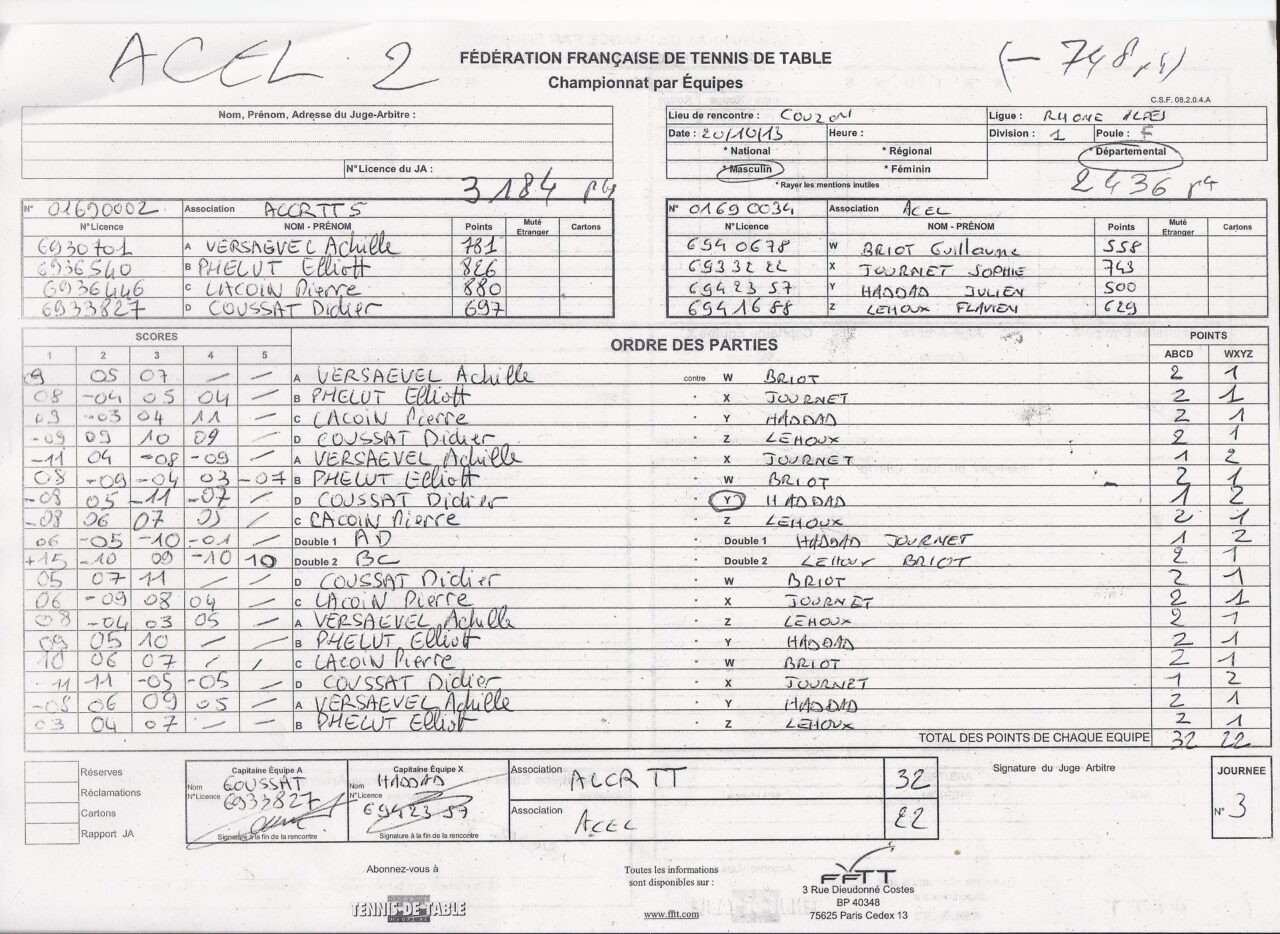 ACEL 2
FÉDÉRATION FRANÇAISE DE TENNIS DE TABLE
Championnat par Équipes
(- 748 pts)
C.S.F. 08.2.0.4.A
Nom, Prénom, Adresse du Juge-Arbitre :
N°Licence du JA :
Lieu de rencontre : COUZON
Ligue : RHONE ALPES
Date : 20/10/13 Heure : Division : 1 Poule : F
* National * Régional * Départemental
* Masculin * Féminin
* Rayer les mentions inutiles
3184 pts
2436 pts
N° 01690002 Association ACCRTT 5
N°Licence NOM - PRÉNOM Points Muté Etranger Cartons
6930701 A VERSAEVEL Achille 781
6936540 B PHELUT Elliott 826
6936446 C LACOIN Pierre 880
6933827 D COUSSAT Didier 697
N° 01690034 Association ACEL
N°Licence NOM - PRÉNOM Points Muté Etranger Cartons
6940678 W BRIOT Guillaume 558
6933222 X JOURNET SOPHIE 743
6942357 Y HADDAD JULIEN 500
6941688 Z LEHOUX FLAVIEN 629
SCORES ORDRE DES PARTIES POINTS
1 2 3 4 5 ABCD WXYZ
09 05 07 — — A VERSAEVEL Achille contre W BRIOT 2 1
08 -04 05 04 — B PHELUT Elliott " X JOURNET 2 1
09 -03 04 11 — C LACOIN Pierre " Y HADDAD 2 1
-09 09 10 09 — D COUSSAT Didier " Z LEHOUX 2 1
-11 04 -08 -09 — A VERSAEVEL Achille " X JOURNET 1 2
08 -09 -04 03 -07 B PHELUT Elliott " W BRIOT 2 1
-08 05 -11 -07 — D COUSSAT Didier " Y HADDAD 1 2
-08 06 07 09 — C LACOIN Pierre " Z LEHOUX 2 1
06 -05 -10 -01 — Double 1 AD " Double 1 HADDAD JOURNET 1 2
+15 -10 09 -10 10 Double 2 BC " Double 2 LEHOUX BRIOT 2 1
05 07 11 — — D COUSSAT Didier " W BRIOT 2 1
06 -09 08 04 — C LACOIN Pierre " X JOURNET 2 1
08 -04 03 05 — A VERSAEVEL Achille " Z LEHOUX 2 1
09 05 10 — — B PHELUT Elliott " Y HADDAD 2 1
10 06 07 — — C LACOIN Pierre " W BRIOT 2 1
-11 11 -05 -05 — D COUSSAT Didier " X JOURNET 1 2
-08 06 09 05 — A VERSAEVEL Achille " Y HADDAD 2 1
03 04 07 — — B PHELUT Elliott " Z LEHOUX 2 1
TOTAL DES POINTS DE CHAQUE EQUIPE 32 22
Réserves
Réclamations
Cartons
Rapport JA
Capitaine Équipe A
Nom COUSSAT
N°Licence 6933827
Signature à la fin de la rencontre
Capitaine Équipe X
Nom HADDAD
N°Licence 6942357
Signature à la fin de la rencontre
Association ACCR TT 32
Association ACEL 22
Signature du Juge Arbitre
JOURNEE
N° 3
Abonnez-vous à
TENNIS-DE-TABLE
Toutes les informations
sont disponibles sur :
www.fftt.com
FFTT
3 Rue Dieudonné Costes
BP 40348
75625 Paris Cedex 13